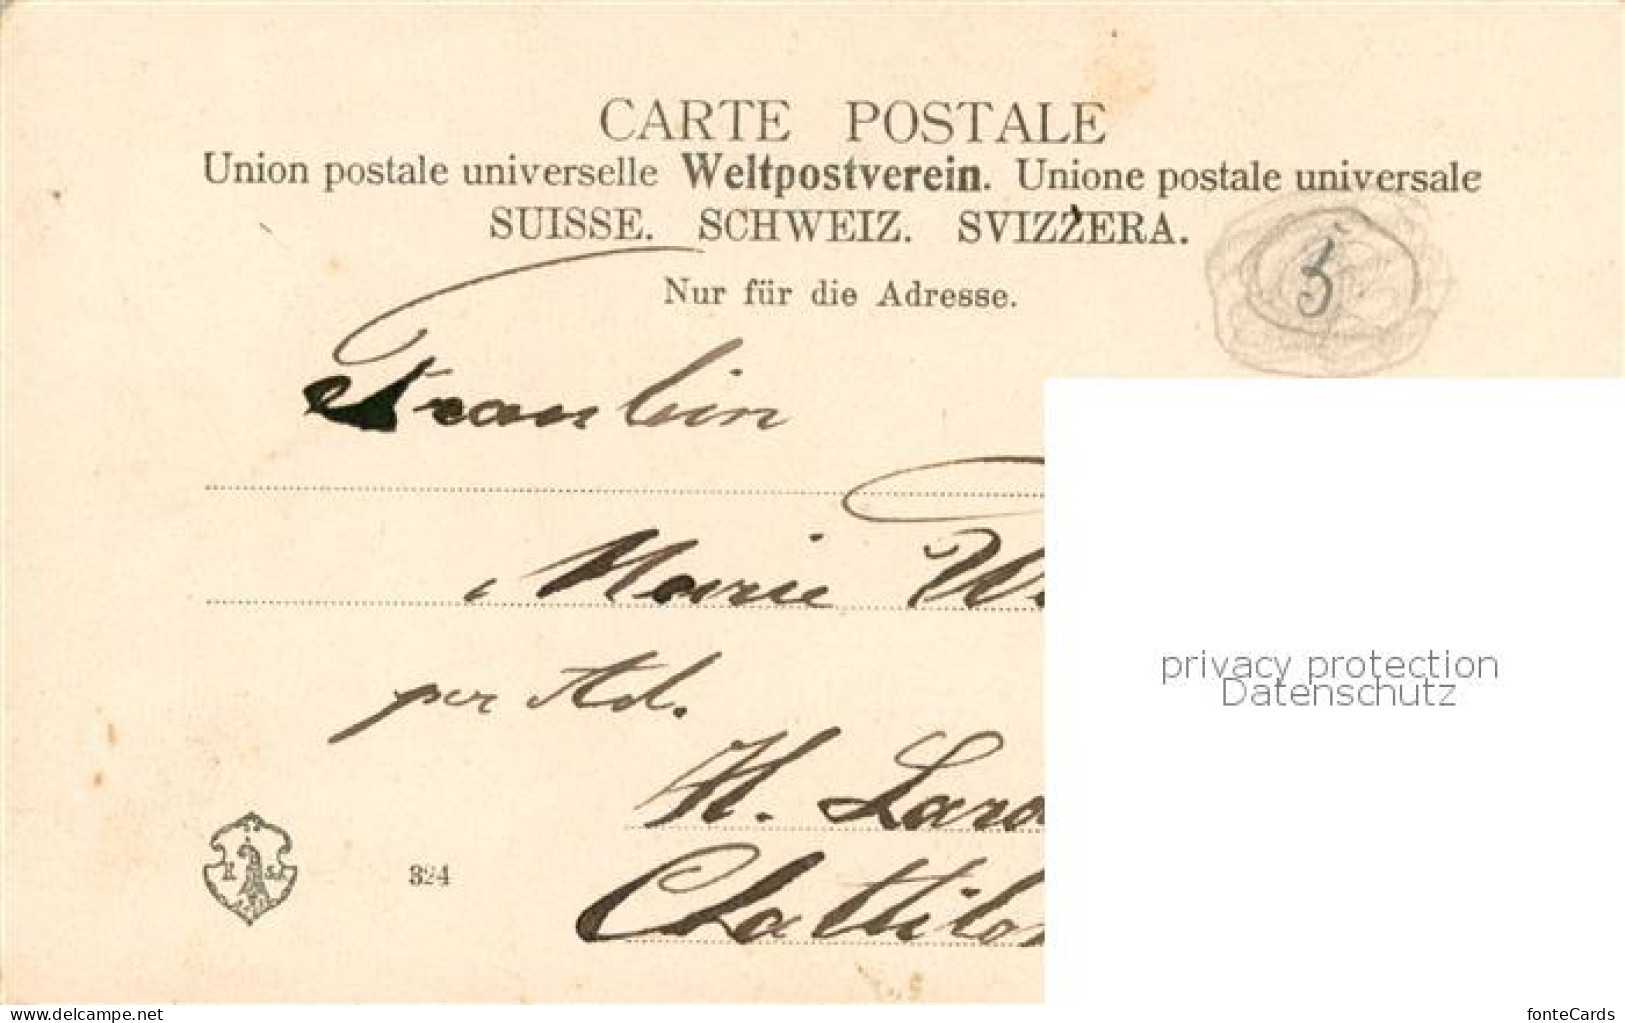 CARTE POSTALE
Union postale universelle Weltpostverein. Unione postale universale
SUISSE. SCHWEIZ. SVIZZERA.
Nur für die Adresse.
5
Fraulein
Marie W
per Ad.
H. Laro
privacy protection
Datenschutz
324
www.delcampe.net
fonteCards